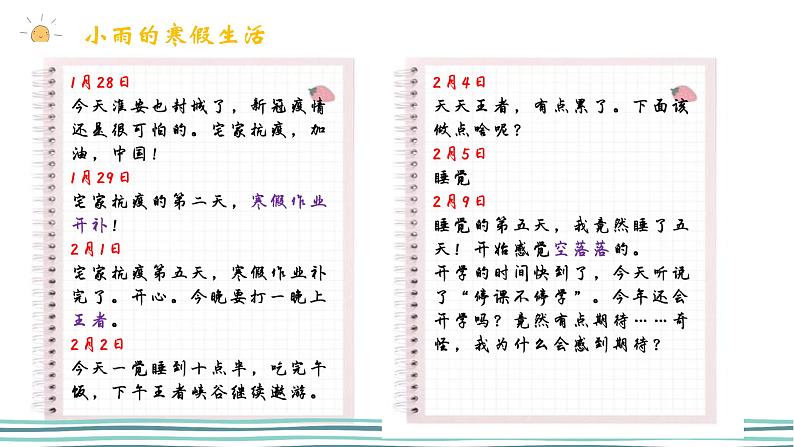 小雨的寒假生活
1月28日
今天淮安也封城了，新冠疫情
还是很可怕的。宅家抗疫，加
油，中国！
1月29日
宅家抗疫的第二天，寒假作业
开补！
2月1日
宅家抗疫第五天，寒假作业补
完了。开心。今晚要打一晚上
王者。
2月2日
今天一觉睡到十点半，吃完午
饭，下午王者峡谷继续遨游。
2月4日
天天王者，有点累了。下面该
做点啥呢？
2月5日
睡觉
2月9日
睡觉的第五天，我竟然睡了五
天！开始感觉空落落的。
开学的时间快到了，今天听说
了“停课不停学”。今年还会
开学吗？竟然有点期待……奇
怪，我为什么会感到期待？